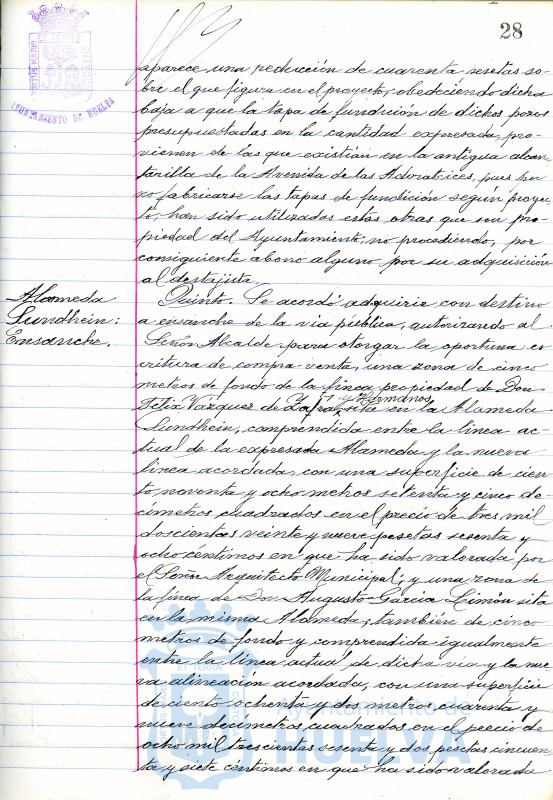 28
AYUNTAMIENTO DE HUELVA
aparece una reducción de cuarenta pesetas so-
bre el que figura en el proyecto, obedeciendo dicha
baja a que la tapa de fundición de dichos pozos
presupuestadas en la cantidad expresada, pro-
vienen de las que existían en la antigua alcan-
tarilla de la Avenida de las Adoratrices, pues
no fabricarse las tapas de fundición según proyec-
to, han sido utilizadas estas otras que son pro-
piedad del Ayuntamiento, no procediendo, por
consiguiente abono alguno por su adquisición
al destajista.
Alameda
Sundhein:
Ensanche.
Quinto. Se acordó adquirir con destino
a ensanche de la via pública, autorizando al
Señor Alcalde para otorgar la oportuna es
critura de compra-venta, una zona de cinco
metros de fondo de la finca propiedad de Don
y Hermanos
Felix Vázquez de Zafra, sita en la Alameda
Sundhein, comprendida entre la línea ac-
tual de la expresada Alameda y la nueva
línea acordada, con una superficie de cien-
to, noventa y ocho metros setenta y cinco de-
címetros cuadrados en el precio de tres mil
doscientas veinte y nueve pesetas sesenta y
ocho céntimos en que ha sido valorada por
el Señor Arquitecto Municipal; y una zona de
la finca de Don Augusto García Limón sita
en la misma Alameda, también de cinco
metros de fondo y comprendida igualmente
entre la línea actual de dicha via y la nue-
va alineación acordada, con una superficie
de ciento ochenta y dos metros cuarenta y
nueve decímetros cuadrados en el precio de
ocho mil trescientas sesenta y dos pesetas cincuen-
ta y siete céntimos en que ha sido valorada
Ayuntamiento de
HUELVA